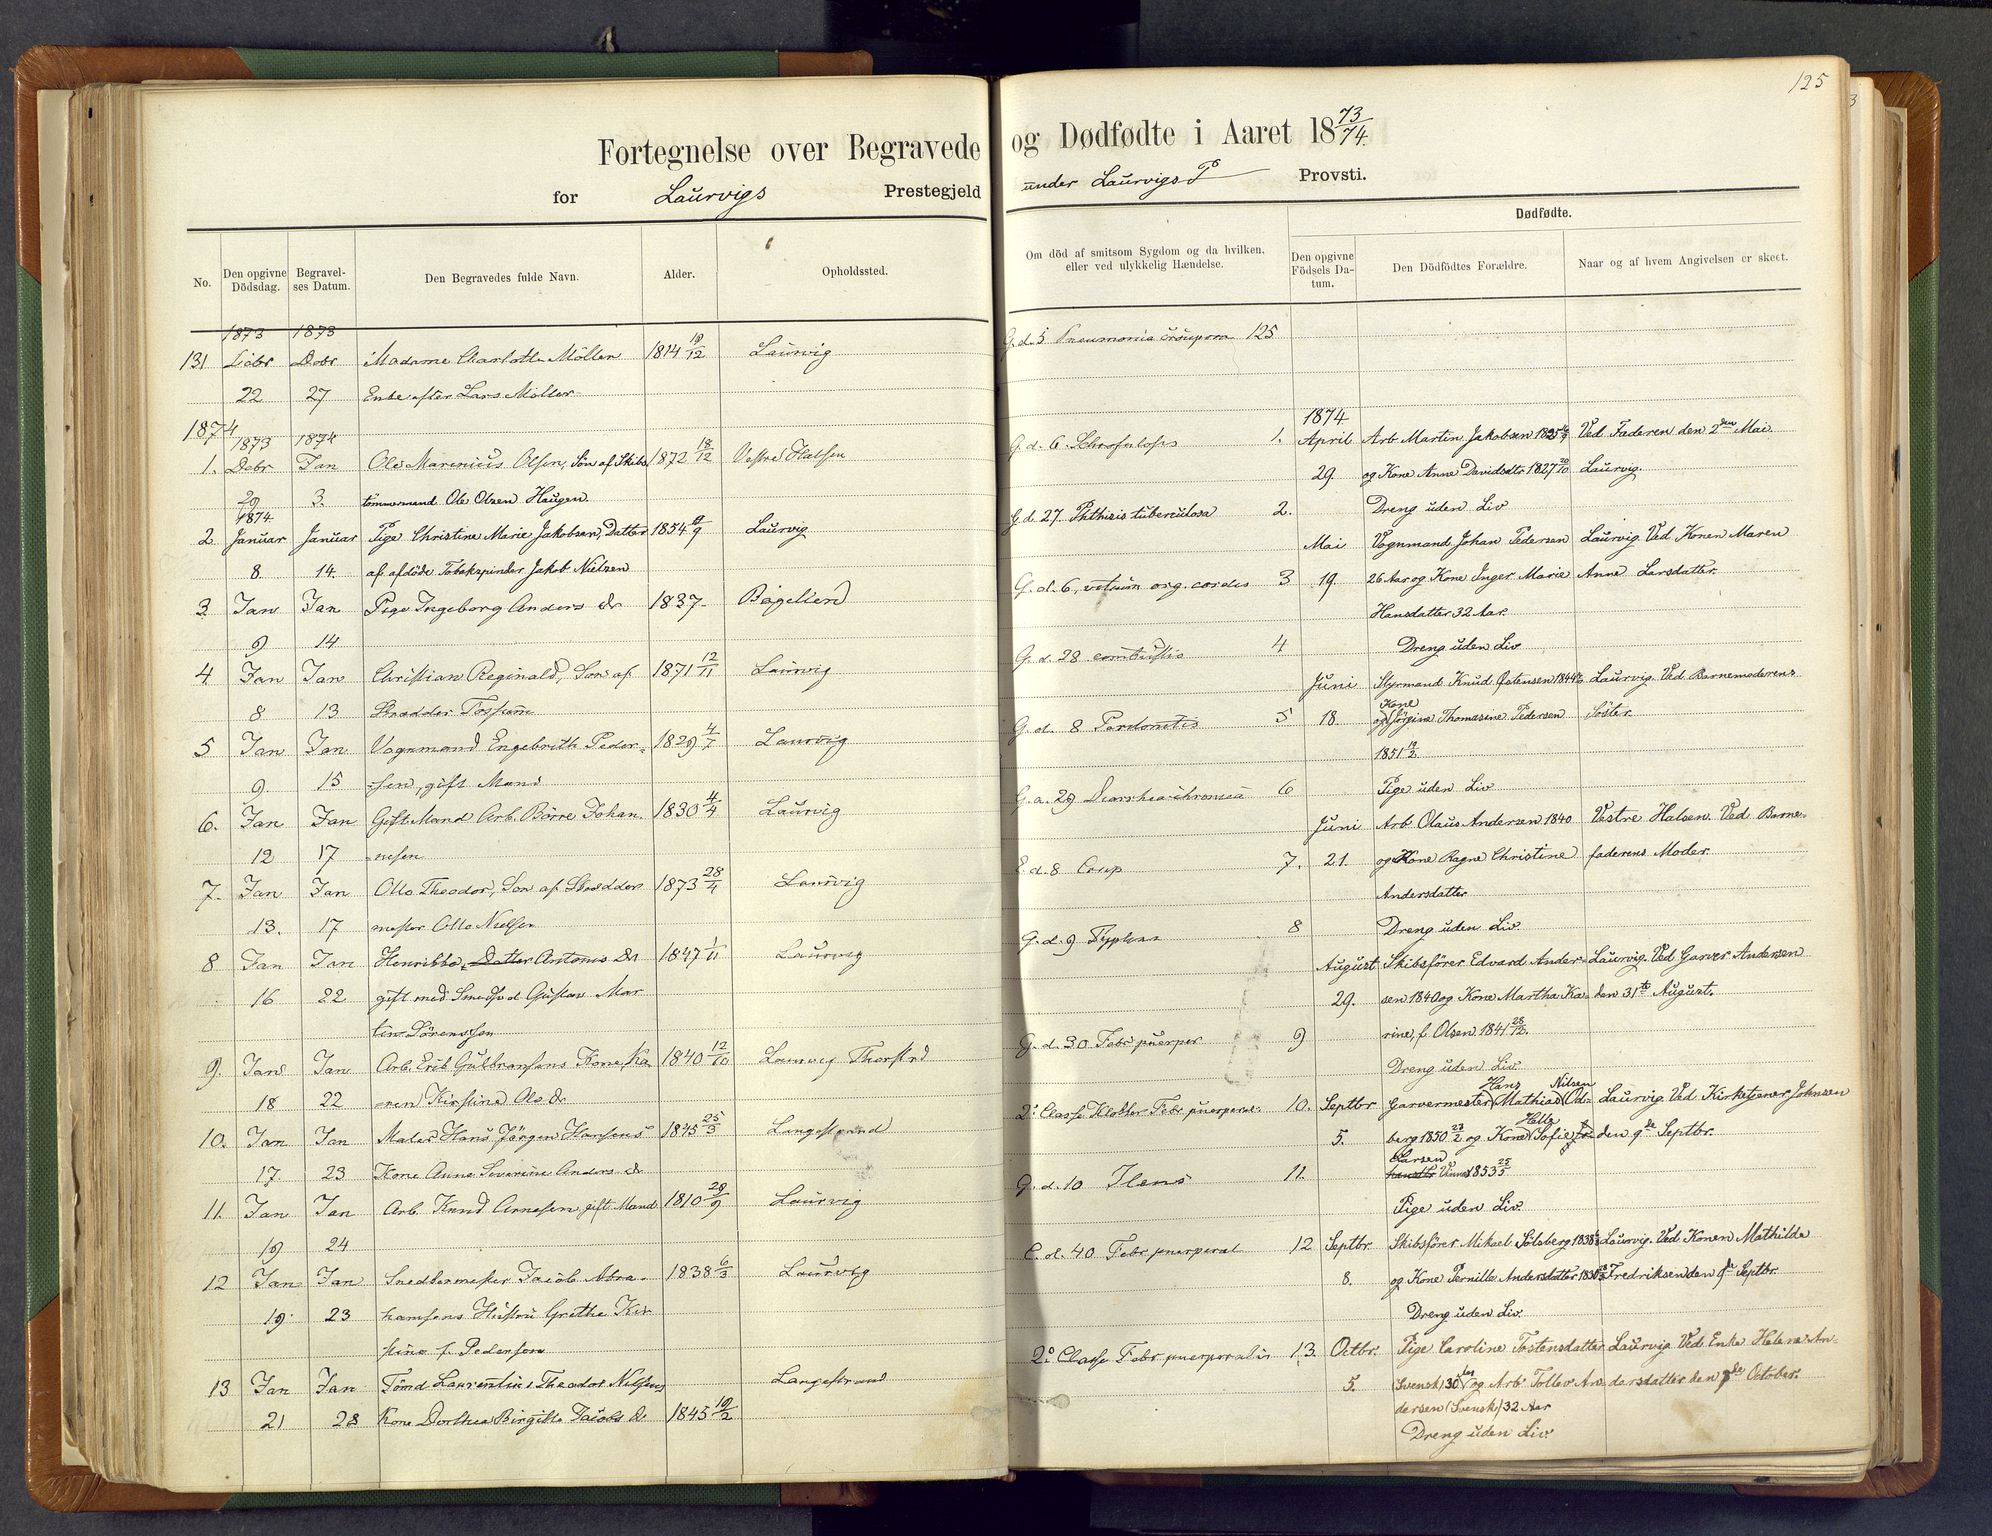 125
Fortegnelse over Begravede og Dødfødte i Aaret 18 73/74.
for Laurvigs Prestegjeld under Laurvigs P Provsti.
No.
Den opgivne Dödsdag.
Begravel-
ses Datum.
Den Begravedes fulde Navn.
Alder.
Opholdssted.
1873 1873
131 Debr Debr Madame Charlotte Möller 1814 19/12 Laurvig
22 27 Enke efter Lars Möller
1874
1873 1874
1. Debr Jan Ole Marenius Olsen, Sön af Skibs 1872 18/12 Vestre Halsen
29 3. tömmermand Ole Olsen Haugen.
1874
2 Januar Januar Pige Christine Marie Jakobsen, Datter 1854 /9 Laurvig
8. 14. af afdöde Tobakspinder Jakob Nielsen
3. Jan Jan Pige Ingeborg Anders dr 1837
9 14
4. Jan Jan Christian Reginald, Sön af 1871 12/11 Laurvig
8 13 Skrædder Fossum
5 Jan Jan Vognmand Engebrith Peder- 1829 4/7 Laurvig
9. 15 -sen, gift Mand
6. Jan Jan Gift Mand Arb. Börre Johan 1830 4/4 Laurvig
12 17 -nesen
7. Jan Jan Otto Theodor, Sön af Skrædder 1873 28/4 Laurvig
13. 17 mester Otto Nielsen
8 Jan Jan Datter Antonis dr 1847 1/11 Laurvig
16 22 gift med Gustav Mar
tin Sörenssen
9. Jan Jan Arb. Erik Gulbransens Kone, Ka 1840 12/10 Laurvig
18 22 -ren Kirstine Ols dr
10. Jan Jan Maler Hans Jörgen Hansens 1845 25/3 Langestrand
17. 23 Kone Anne Severine Anders dr
11. Jan Jan Arb. Knud Arnesen, gift Mand 1810 29/9 Laurvig
19 24
12 Jan Jan Snedkermester Jacob Abra- 1838 6/3 Laurvig
19. 23 hamsens Hustru Grethe Kir
stine f. Pedersen
13 Jan Jan Tömd Laurentius Theodor Nilsens Langestrand
21 28 Kone Dorthea Birgitte Jacobs dr 1845 19/2
Om död af smitsom Sygdom og da hvilken,
eller ved ulykkelig Hændelse.
Dødfødte.
Den opgivne
Födsels Da-
tum.
Den Dödfödtes Forældre.
Naar og af hvem Angivelsen er skeet.
G. d. 5 Pneumonia crouposa 125
1874
G. d. 6. Schrofulosis 1. April Arb Martin Jakobsen 1825 Ved Faderen den 2den Mai
29. og Kone Anne Davidsdtr 1827 20/10 Laurvig.
G. d. 27. Phthisis tuberculosa 2. Dreng uden Liv
Mai Vognmand Johan Pedersen Laurvig. Ved Konen Maren
G. d. 6, vitium org. cordis 3 19. 26 Aar og Kone Inger Marie Anne Larsdatter.
Hansdatter 32 Aar.
G. d. 28 combustio 4 Dreng uden Liv
Juni Styrmand Knud Östensen 1844 Laurvig. Ved Barnemoderens
G. d. 8 5 18. og Kone Jörgine Thomasine Pedersen Söster.
1851 19/2
G. a. 29 Diarrhea chronica 6 Pige uden Liv
Juni Arb Olaus Andersen 1840 Vestre Halsen. Ved Barne-
E. d. 8 Croup 7. 21. og Kone Ragne Christine faderens Moder.
Andersdatter
G. d. 9 8 Dreng uden Liv.
August Skibsförer Edvard Ander- Laurvig. Ved Garver Andersen
29. sen 1840 og Kone Martha Ka- den 31te August.
G. d. 30 Febr puerper 9 rine, f. Olsen 1841 28/12.
Dreng uden Liv.
Hans Nilsen
2. Classe Kloster Febr puerperal. 10. Septbr Garvermester Mathias Od- Laurvig. Ved Kirketjener Johnsen
5. berg 1850 23/2 og Kone Sofie den 9de Septbr.
G. d. 10 Ileus 11. Larsen 1853 25/5
Pige uden Liv.
C. d. 40. Febr puerperal 12 Septbr. Skibsförer Mikael Solsberg 1838 Laurvig. Ved Konen Mathilde
8. og Kone Pernille Andersdatter Fredriksen den 9de Septbr.
Dreng uden Liv.
2. Classe Febr puerperalis 13. Octbr. Pige Caroline Tostensdatter Laurvig. Ved Enke Helene An-
5. (Svensk) 30 og Arb Tollev An- dersdatter den de October.
dersen (Svensk) 32 Aar
Dreng uden Liv.